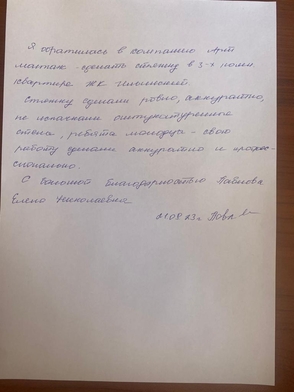 Я обратилась в компанию Арт
монтаж - сделать стяжку в 3-х комн.
квартире ЖК Ильинский.
Стяжку сделали ровно, аккуратно,
не испачкали оштукатуренные
стены, ребята молодцы - свою
работу сделали аккуратно и профес-
сионально.
С большой благодарностью Павлова
Елена Николаевна